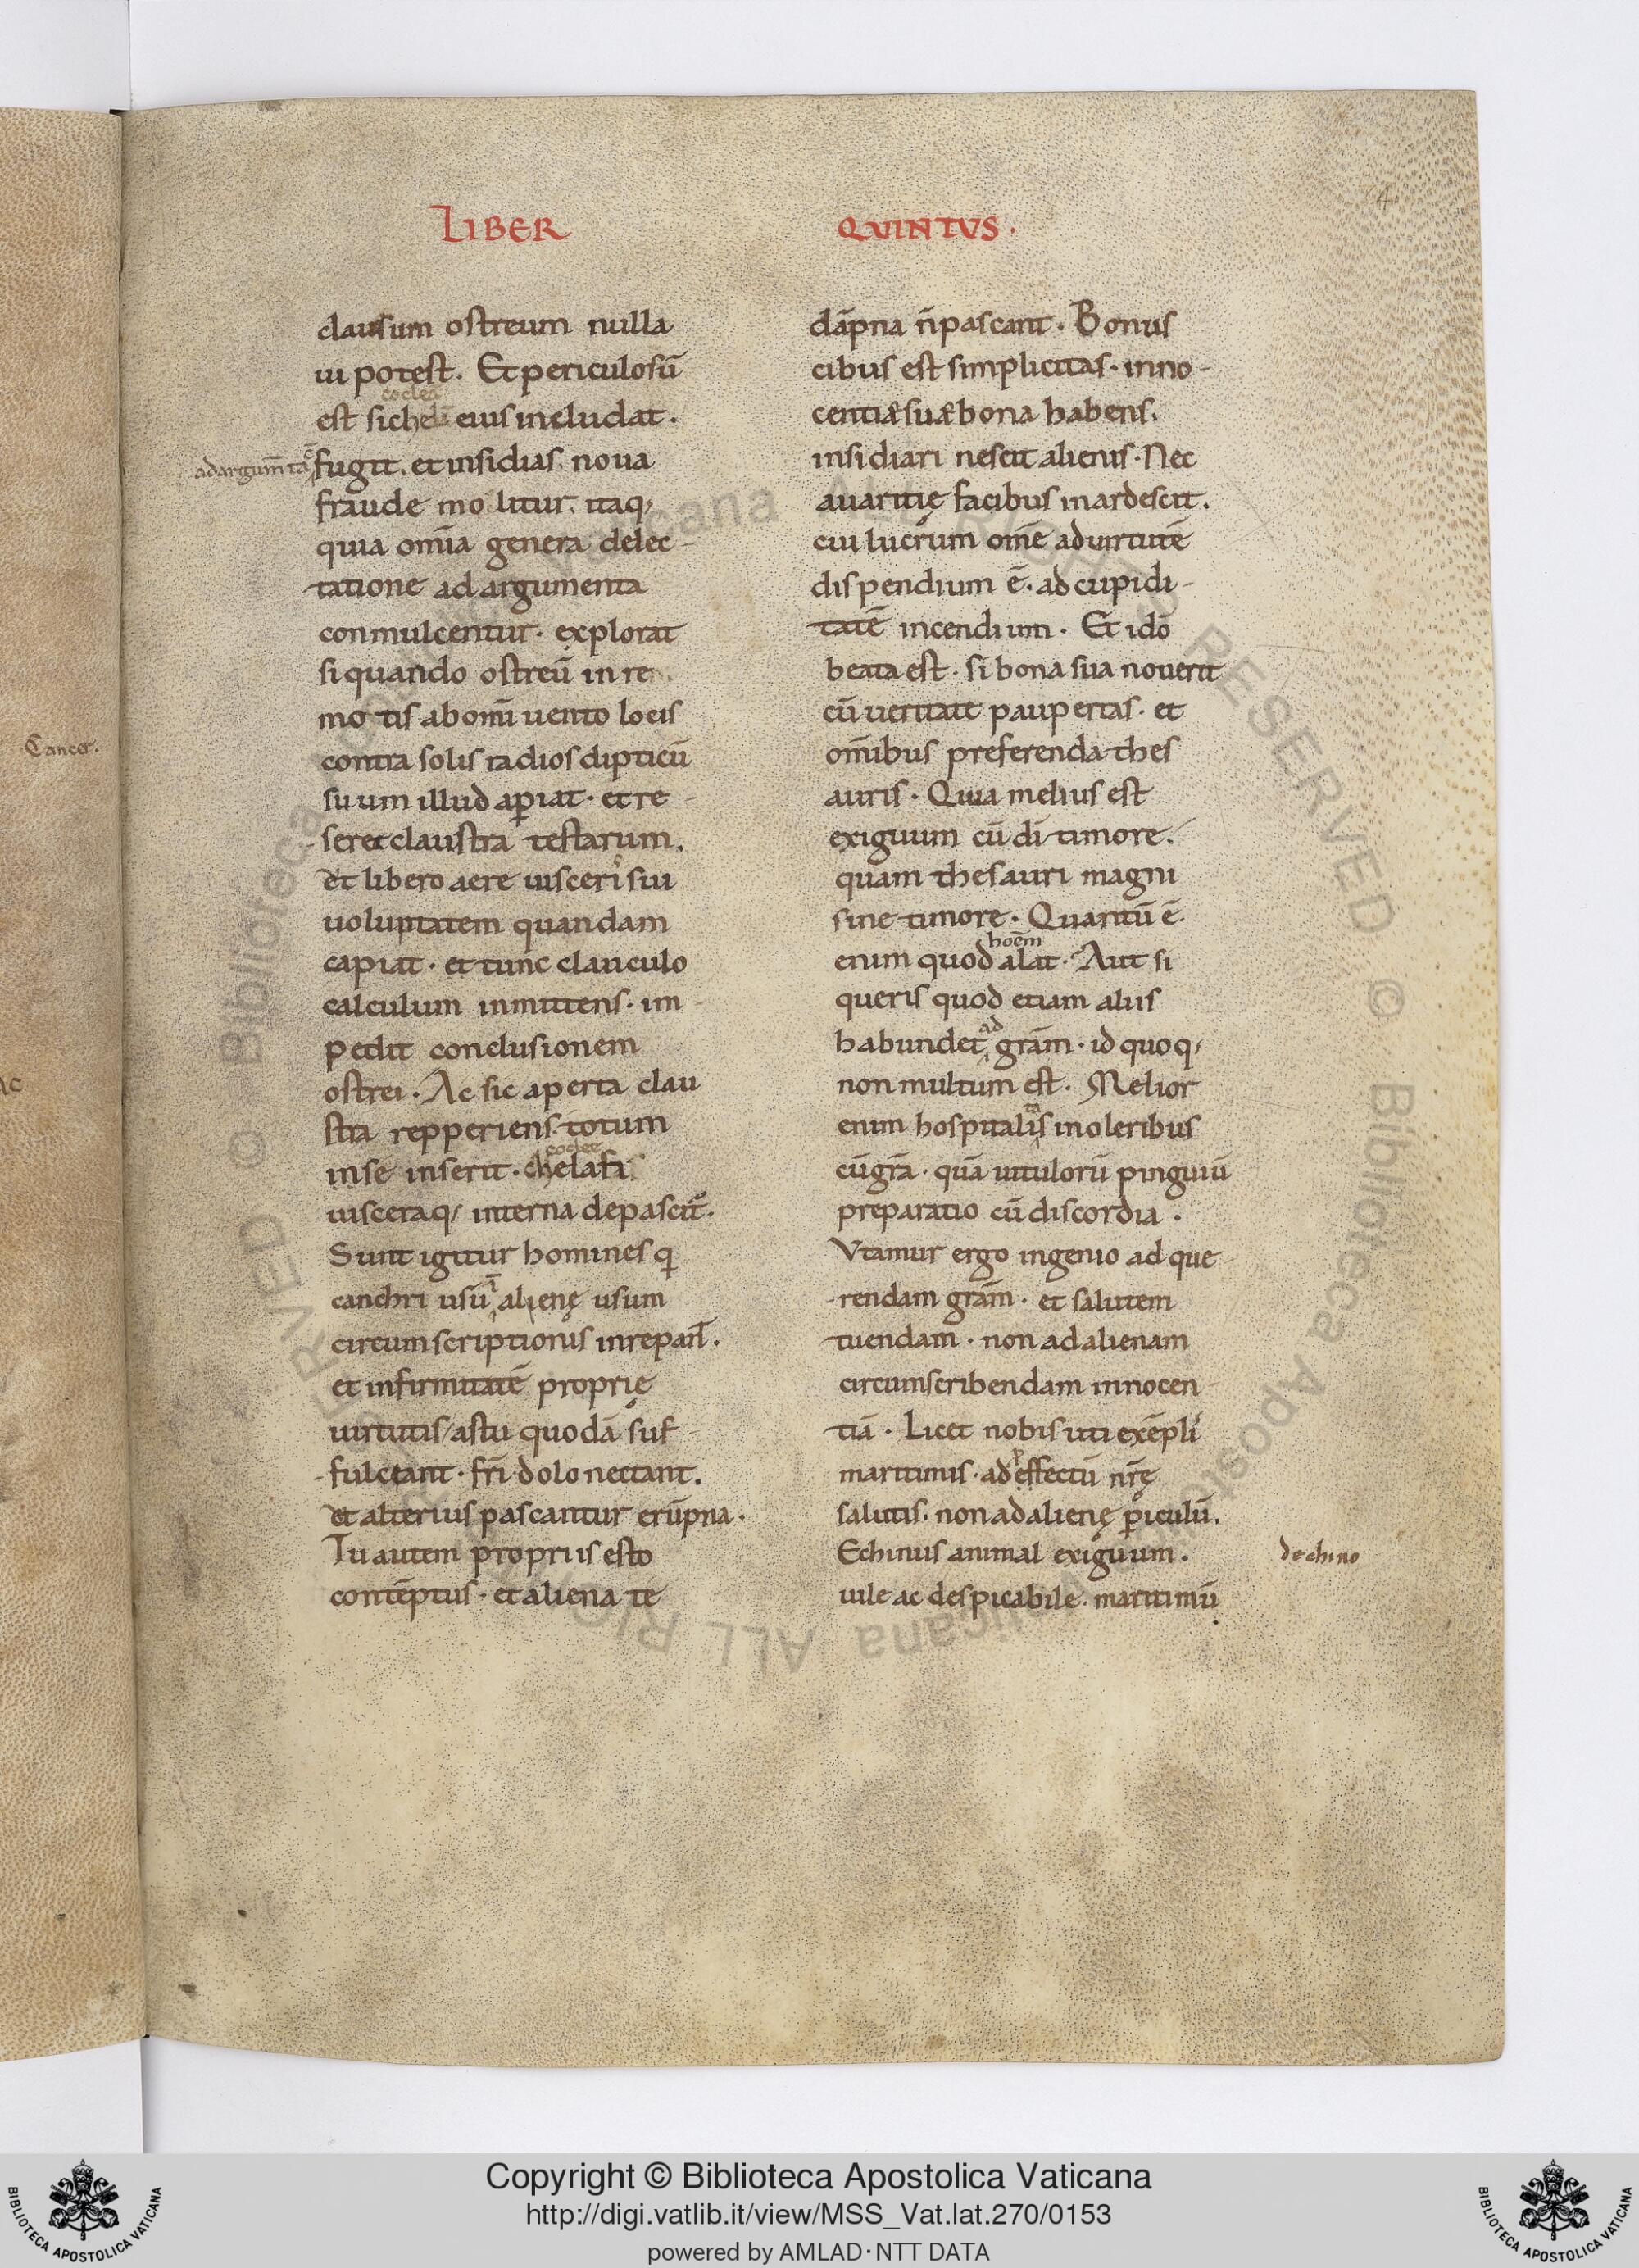 LIBER
QVINTVS.
clausum ostreum nulla
ui potest. Et periculosū
coclea
est si chela eius includat.
ad argum̄ta
fugit. et insidias noua
fraude molitur. itaq;
quia om̄ia genera delec-
tatione ad argumenta
conmulcentur. explorat
si quando ostreū in re
motis ab om̄i uento locis
contra solis radios dipticū
suum illud aꝑiat. et re-
seret claustra testarum.
et libero aere uisceri sui
uoluptatem quandam
capiat. et tunc clanculo
calculum inmittens. im-
pedit conclusionem
ostrei. Ac sic aperta clau
stra repperiens. totum
inse inserit. chela
uisceraq; interna depascit̄.
Sunt igitur homines q
canchri usū alienę usum
circumscriptionis inrepant.
et infirmitatē proprię
uirtutis astu quodā suf-
fulciant. fr̄i dolo nectant.
et alterius pascantur erūpna.
Tu autem propriis esto
contēptus. et aliena te
dāpna n̄ pascant. Bonus
cibus est simplicitas. inno-
centia sua bona habens.
insidiari nescit alienis. Nec
auaritię facibus inardescit.
cui lucrum om̄e ad uirtutē
dispendium ē. ad cupidi-
tatē incendium. Et idō
beata est. si bona sua nouerit
cū ueritate paupertas. et
om̄ibus preferenda thes
auris. Quia melius est
exiguum cū dī timore.
quam thesauri magni
sine timore. Quantū ē
hoēm
enim quod alat. Aut si
queris quod etiam aliis
ad
habundet grām. id quoq;
non multum est. Melior
enim hospitalis in oleribus
cū grā. quā uitulorū pinguiū
preparatio cū discordia.
Vtamur ergo ingenio ad que
rendam grām. et salutem
tuendam. non ad alienam
circumscribendam innocen
tiā. Licet nobis uti exēpli
maritimis. ad effectū nr̄ę
salutis. non ad alienę ꝑiculū.
Echinus animal exiguum.
dechino
uile ac despicabile. maritimū
Cancer.
Copyright © Biblioteca Apostolica Vaticana
http://digi.vatlib.it/view/MSS_Vat.lat.270/0153
powered by AMLAD·NTT DATA
BIBLIOTECA APOSTOLICA VATICANA
BIBLIOTECA APOSTOLICA VATICANA